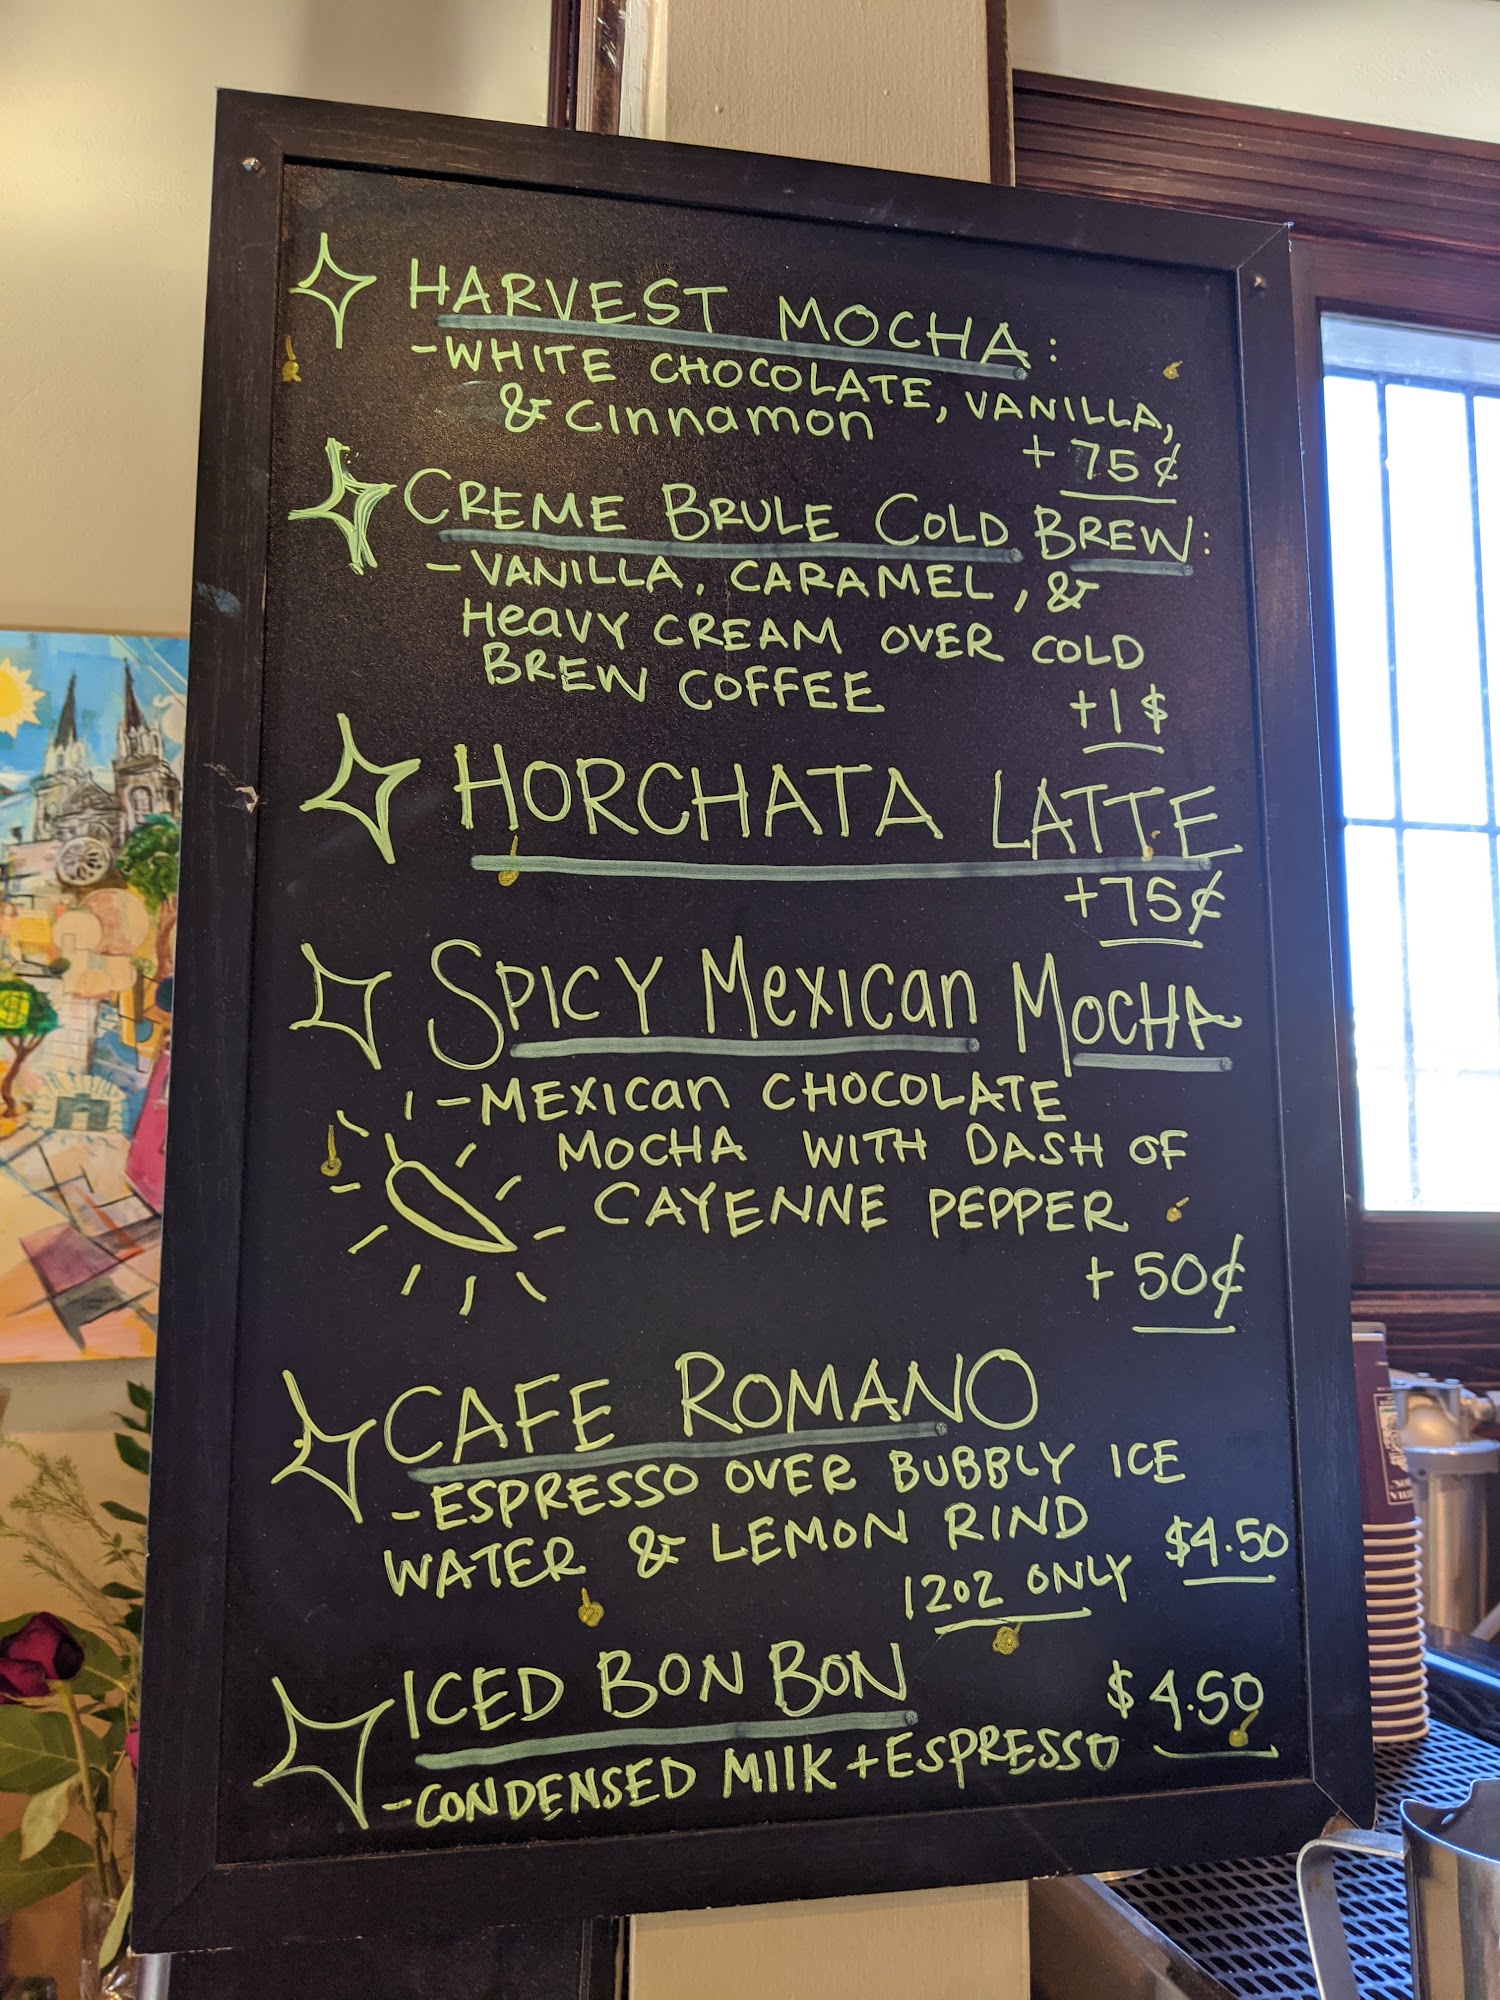 HARVEST MOCHA:
-WHITE CHOCOLATE, VANILLA,
& Cinnamon
+ 75¢
CREME BRULE COLD BREW:
-VANILLA, CARAMEL, &
HEAVY CREAM OVER COLD
BREW COFFEE
+1$
HORCHATA LATTE
+75¢
SPICY MEXICAN MOCHA
-MEXICAN CHOCOLATE
MOCHA WITH DASH OF
CAYENNE PEPPER
+ 50¢
CAFE ROMANO
-ESPRESSO OVER BUBBLY ICE
WATER & LEMON RIND
$4.50
12oz ONLY
ICED BON BON
$4.50
-CONDENSED MilK + ESPRESSO